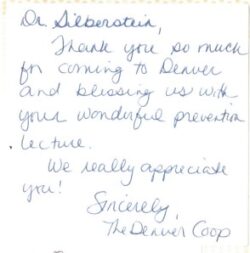 Dr. Silberstein,
Thank you so much
for coming to Denver
and blessing us with
your wonderful prevention
lecture.
We really appreciate
you!
Sincerely,
The Denver Coop